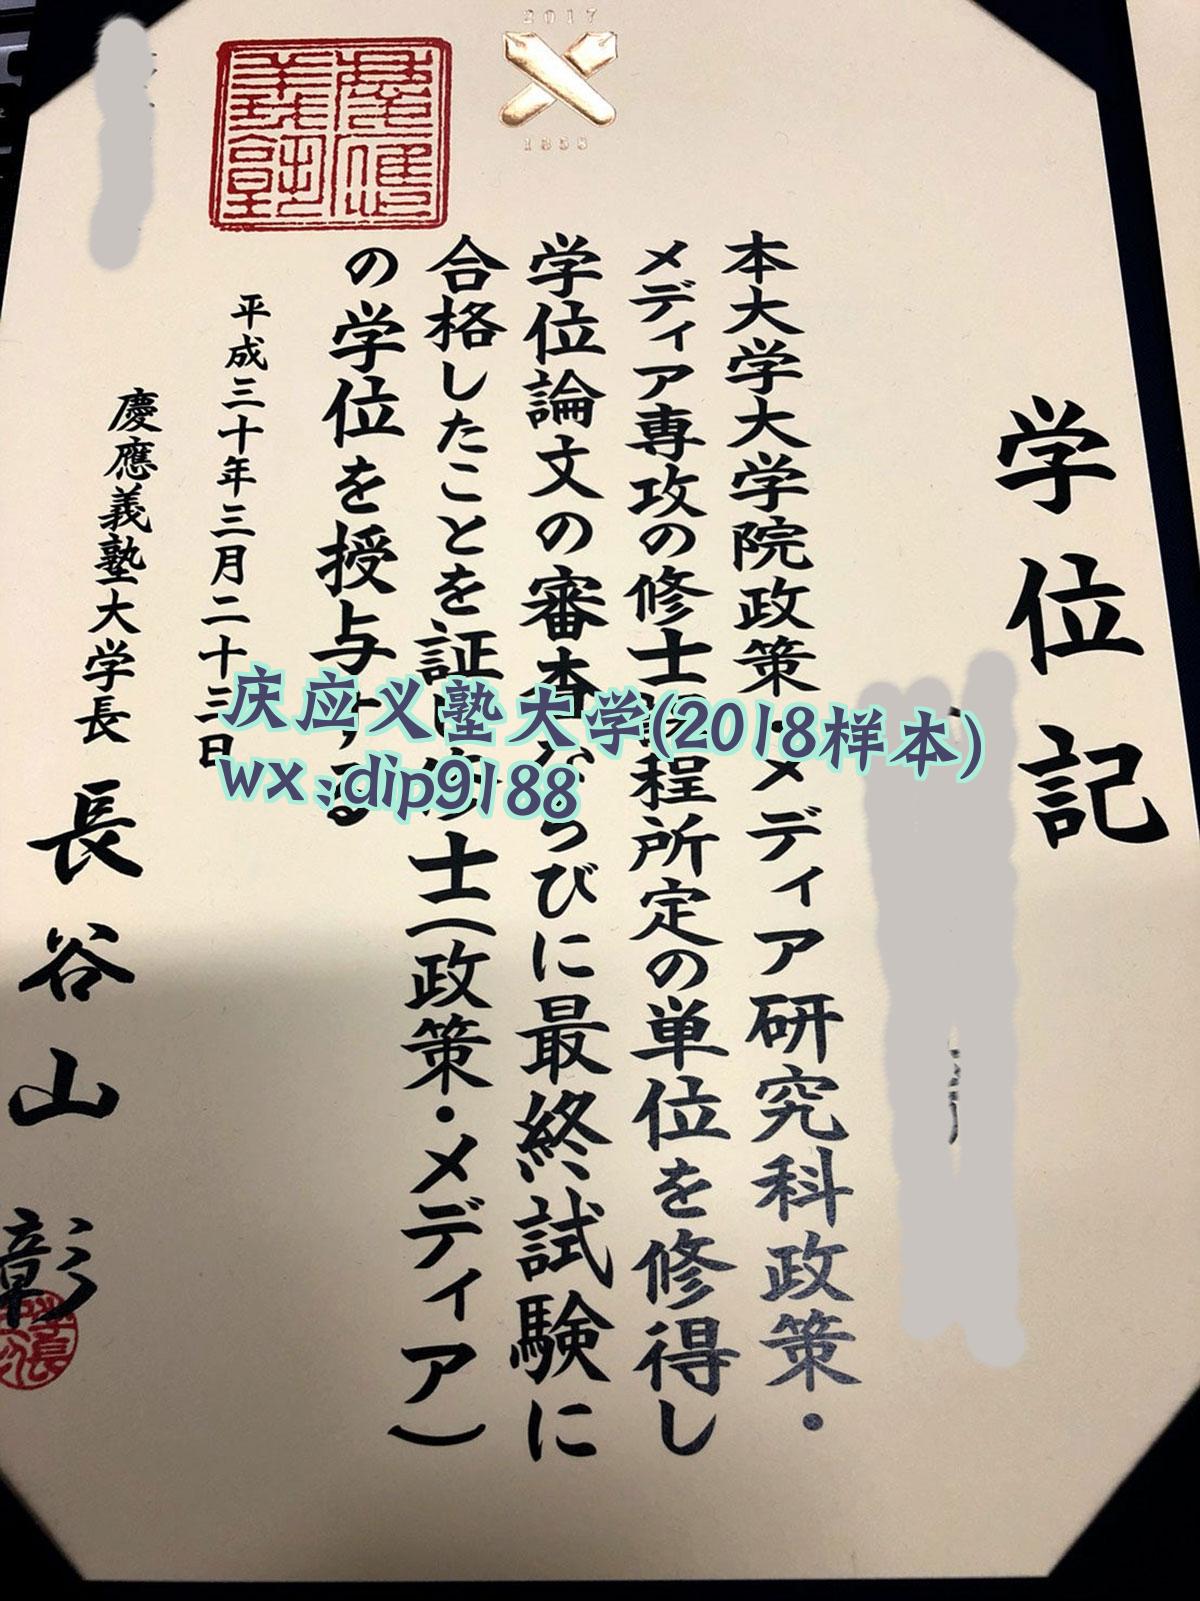 2017
1858
慶應義塾
学位記
本大学大学院政策・メディア研究科政策・
メディア専攻の修士課程所定の単位を修得し
学位論文の審査ならびに最終試験に
合格したことを証し修士(政策・メディア)
の学位を授与する
平成三十年三月二十三日
慶應義塾大学長 長谷山 彰
庆应义塾大学(2018样本)
wx:dip9188